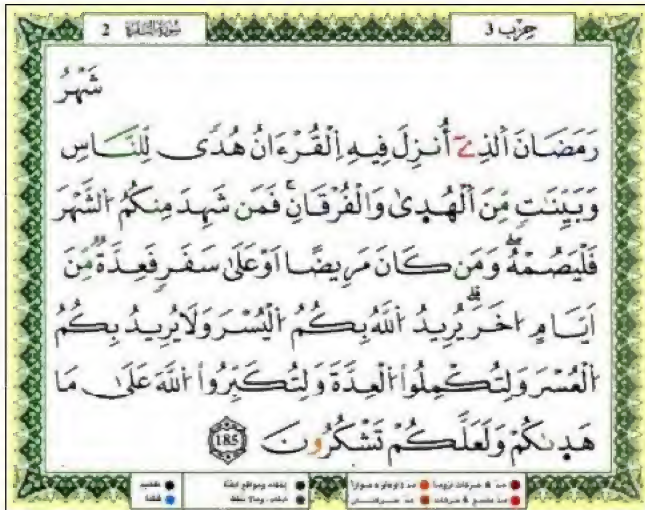 حِزْب 3
سُورَةُ البَقَرَة 2
شَهْرُ
رَمَضَانَ اَ۬لذِےٓ أُنزِلَ فِيهِ اِ۬لْقُرْءَانُ هُدىٗ لِّلنَّاسِ
وَبَيِّنَٰتٖ مِّنَ اَ۬لْهُد۪ىٰ وَالْفُرْقَانِۖ فَمَن شَهِدَ مِنكُمُ اُ۬لشَّهْرَ
فَلْيَصُمْهُۖ وَمَن كَانَ مَرِيضاً اَوْ عَلَىٰ سَفَرٖ فَعِدَّةٞ مِّنَ
اَيَّامٍ اُخَرَۖ يُرِيدُ اُ۬للَّهُ بِكُمُ اُ۬لْيُسْرَ وَلَا يُرِيدُ بِكُمُ
اُ۬لْعُسْرَ وَلِتُكْمِلُواْ اُ۬لْعِدَّةَ وَلِتُكَبِّرُواْ اُ۬للَّهَ عَلَىٰ مَا
هَد۪ىٰكُمْ وَلَعَلَّكُمْ تَشْكُرُونَ 185